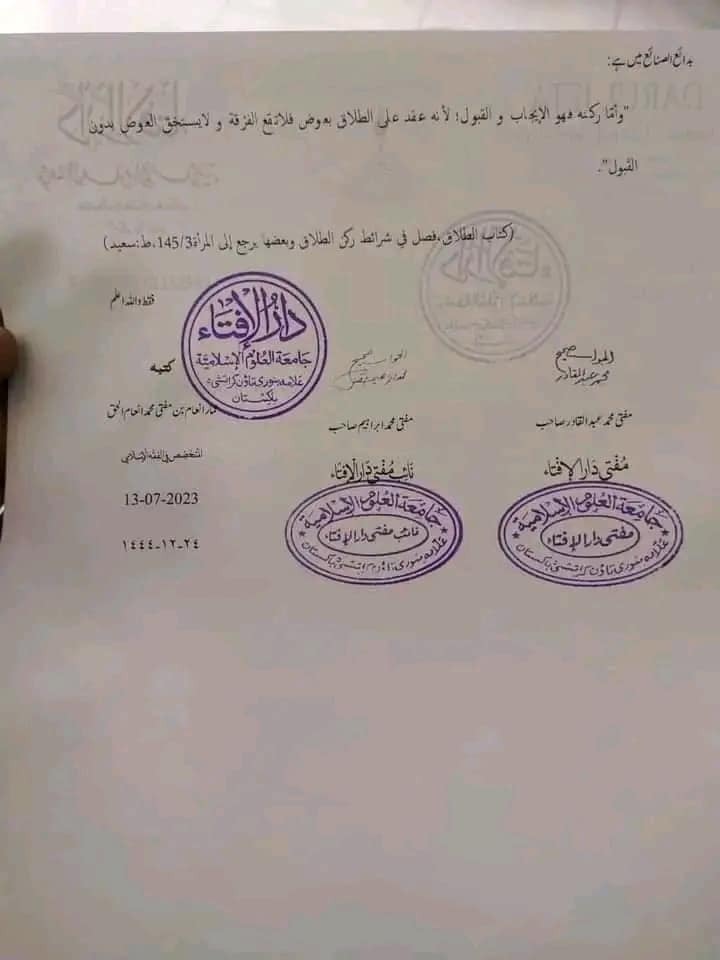 بدائع الصنائع میں ہے:
"وأمّا ركنه فهو الإيجاب و القبول؛ لأنه عقد على الطلاق بعوض فلاتقع الفرقة و لايستحق العوض بدون
القبول".
(كتاب الطلاق، فصل في شرائط ركن الطلاق وبعضها يرجع إلى المرأة، 145/3، ط:سعيد)
فقط واللہ اعلم
دار الإفتاء
جامعة العلوم الإسلامية
علامہ بنوری ٹاؤن کراتشي
باكستان
الجواب صحیح
محمد عبدالقادر
الجواب صحیح
کتبه
مفتی محمد عبدالقادر صاحب
مفتی محمد ابراہیم صاحب
انعام بن مفتی محمد انعام الحق
مُفتی دَارُ الإفتاء
نائب مُفتی دَارُ الإفتاء
المتخصص في الفقه الإسلامي
جامعة العلوم الإسلامية
مفتی دار الإفتاء
علامہ بنوری ٹاؤن کراتشي باكستان
جامعة العلوم الإسلامية
نائب مفتی دار الإفتاء
علامہ بنوری ٹاؤن کراتشي باكستان
13-07-2023
٢٤-١٢-١٤٤٤